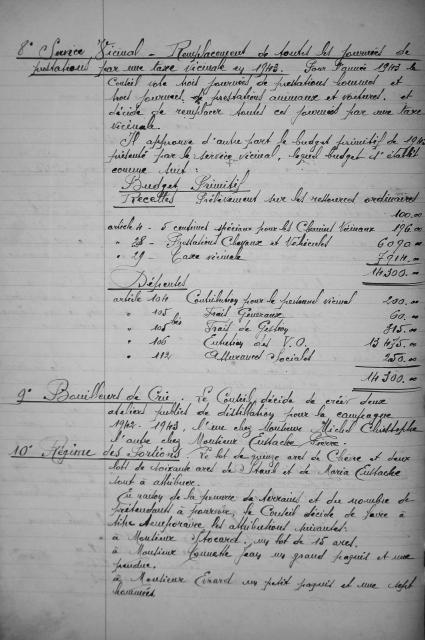 8° Service Vicinal - Remplacement de toutes les journées de
prestations par une taxe vicinale en 1943. Pour l'année 1943 le
Conseil vote trois journées de prestations hommes et
trois journées de prestations animaux et voitures, et
décide de remplacer toutes ces journées par une taxe
vicinale.
Il approuve d'autre part le budget primitif de 1942
présenté par le service vicinal, lequel budget s'établit
comme suit :
Budget Primitif
Recettes Prélèvement sur les ressources ordinaires
100.00
article 4 - 5 centimes spéciaux pour les Chemins Vicinaux 196.00
" 28 - Prestations Chevaux et Véhicules 6090.00
" 29 - Taxe vicinale 7914.00
14300.00
Dépenses
article 104 Contribution pour le personnel vicinal 200.00
" 105 Frais Généraux 60.00
" 105 bis Frais de Gestion 315.00
" 106 Entretien des V.O. 13475.00
" 112 Assurances Sociales 250.00
14300.00
9° Bouilleurs de Cru. Le Conseil décide de créer deux
ateliers publics de distillation pour la campagne
1942-1943, l'un chez Monsieur Michel Christophe
l'autre chez Monsieur Eustache Pierre.
10° Régime des Portions Le lot de quinze ares de et deux
lots de soixante ares de et de Maria Eustache
sont à attribuer.
En raison de la pénurie de terrains et du nombre de
prétendants à pourvoir, le Conseil décide de faire à
titre temporaire les attributions suivantes:
à Monsieur Stocard, un lot de 15 ares.
à Monsieur Jean un grand paquis et une
pendue.
à Monsieur Evrard un petit paquis et une sept
hommées